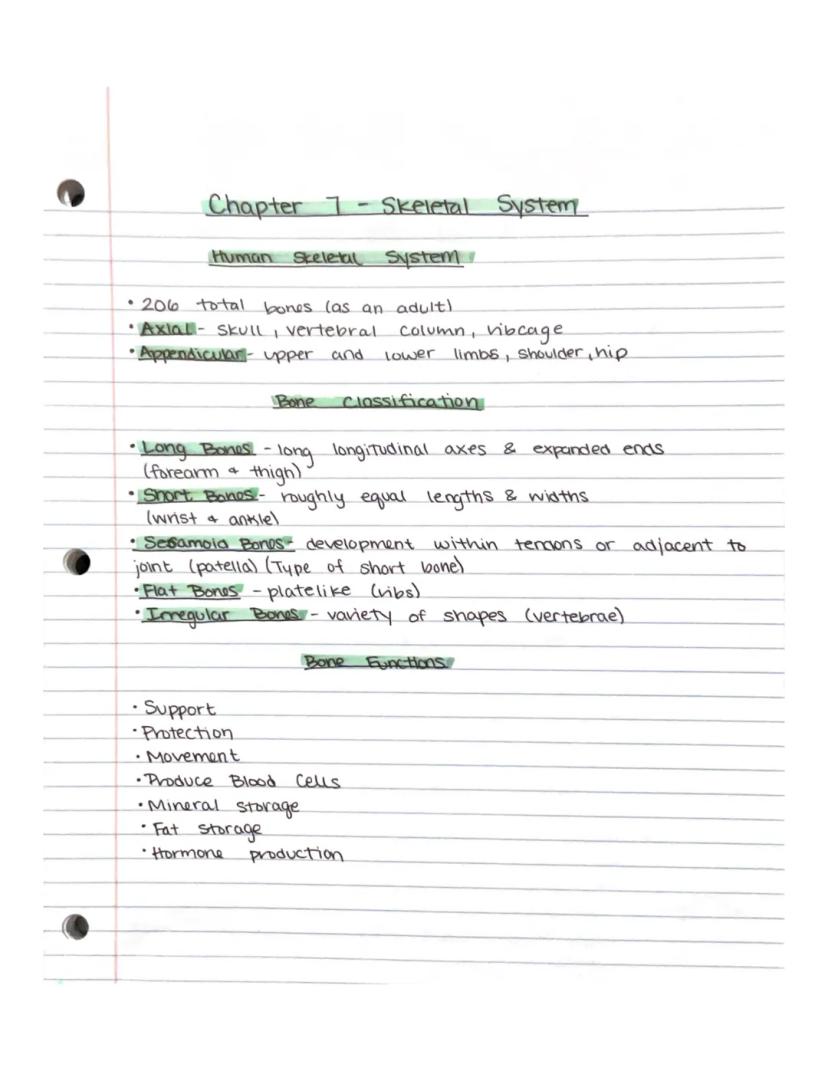 Chapter 7 - Skeletal System
Human Skeletal System
• 206 total bones (as an adult)
• Axial - skull, vertebral column, ribcage
• Appendicular - upper and lower limbs, shoulder, hip
Bone Classification
• Long Bones - long longitudinal axes & expanded ends
(forearm & thigh)
• Short Bones - roughly equal lengths & widths
(wrist & ankle)
• Sesamoid Bones - development within tendons or adjacent to
joint (patella) (Type of short bone)
• Flat Bones - platelike (ribs)
• Irregular Bones - variety of shapes (vertebrae)
Bone Functions
• Support
• Protection
• Movement
• Produce Blood Cells
• Mineral storage
• Fat storage
• Hormone production